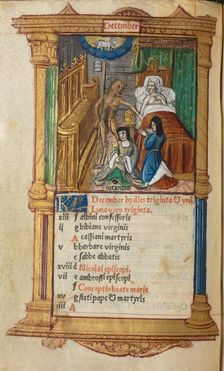 December
December habet dies triginta & vnū
Luna vero triginta.
xiii f albini confessoris
ij g bibiane virginis
A cassiani martyris
v b barbare virginis
c sabbe abbatis
xviii d Nicolai episcopi.
e ambrosii episcopi.
f Conceptio beate marie
xv g sixti pape & martyris
iiii A